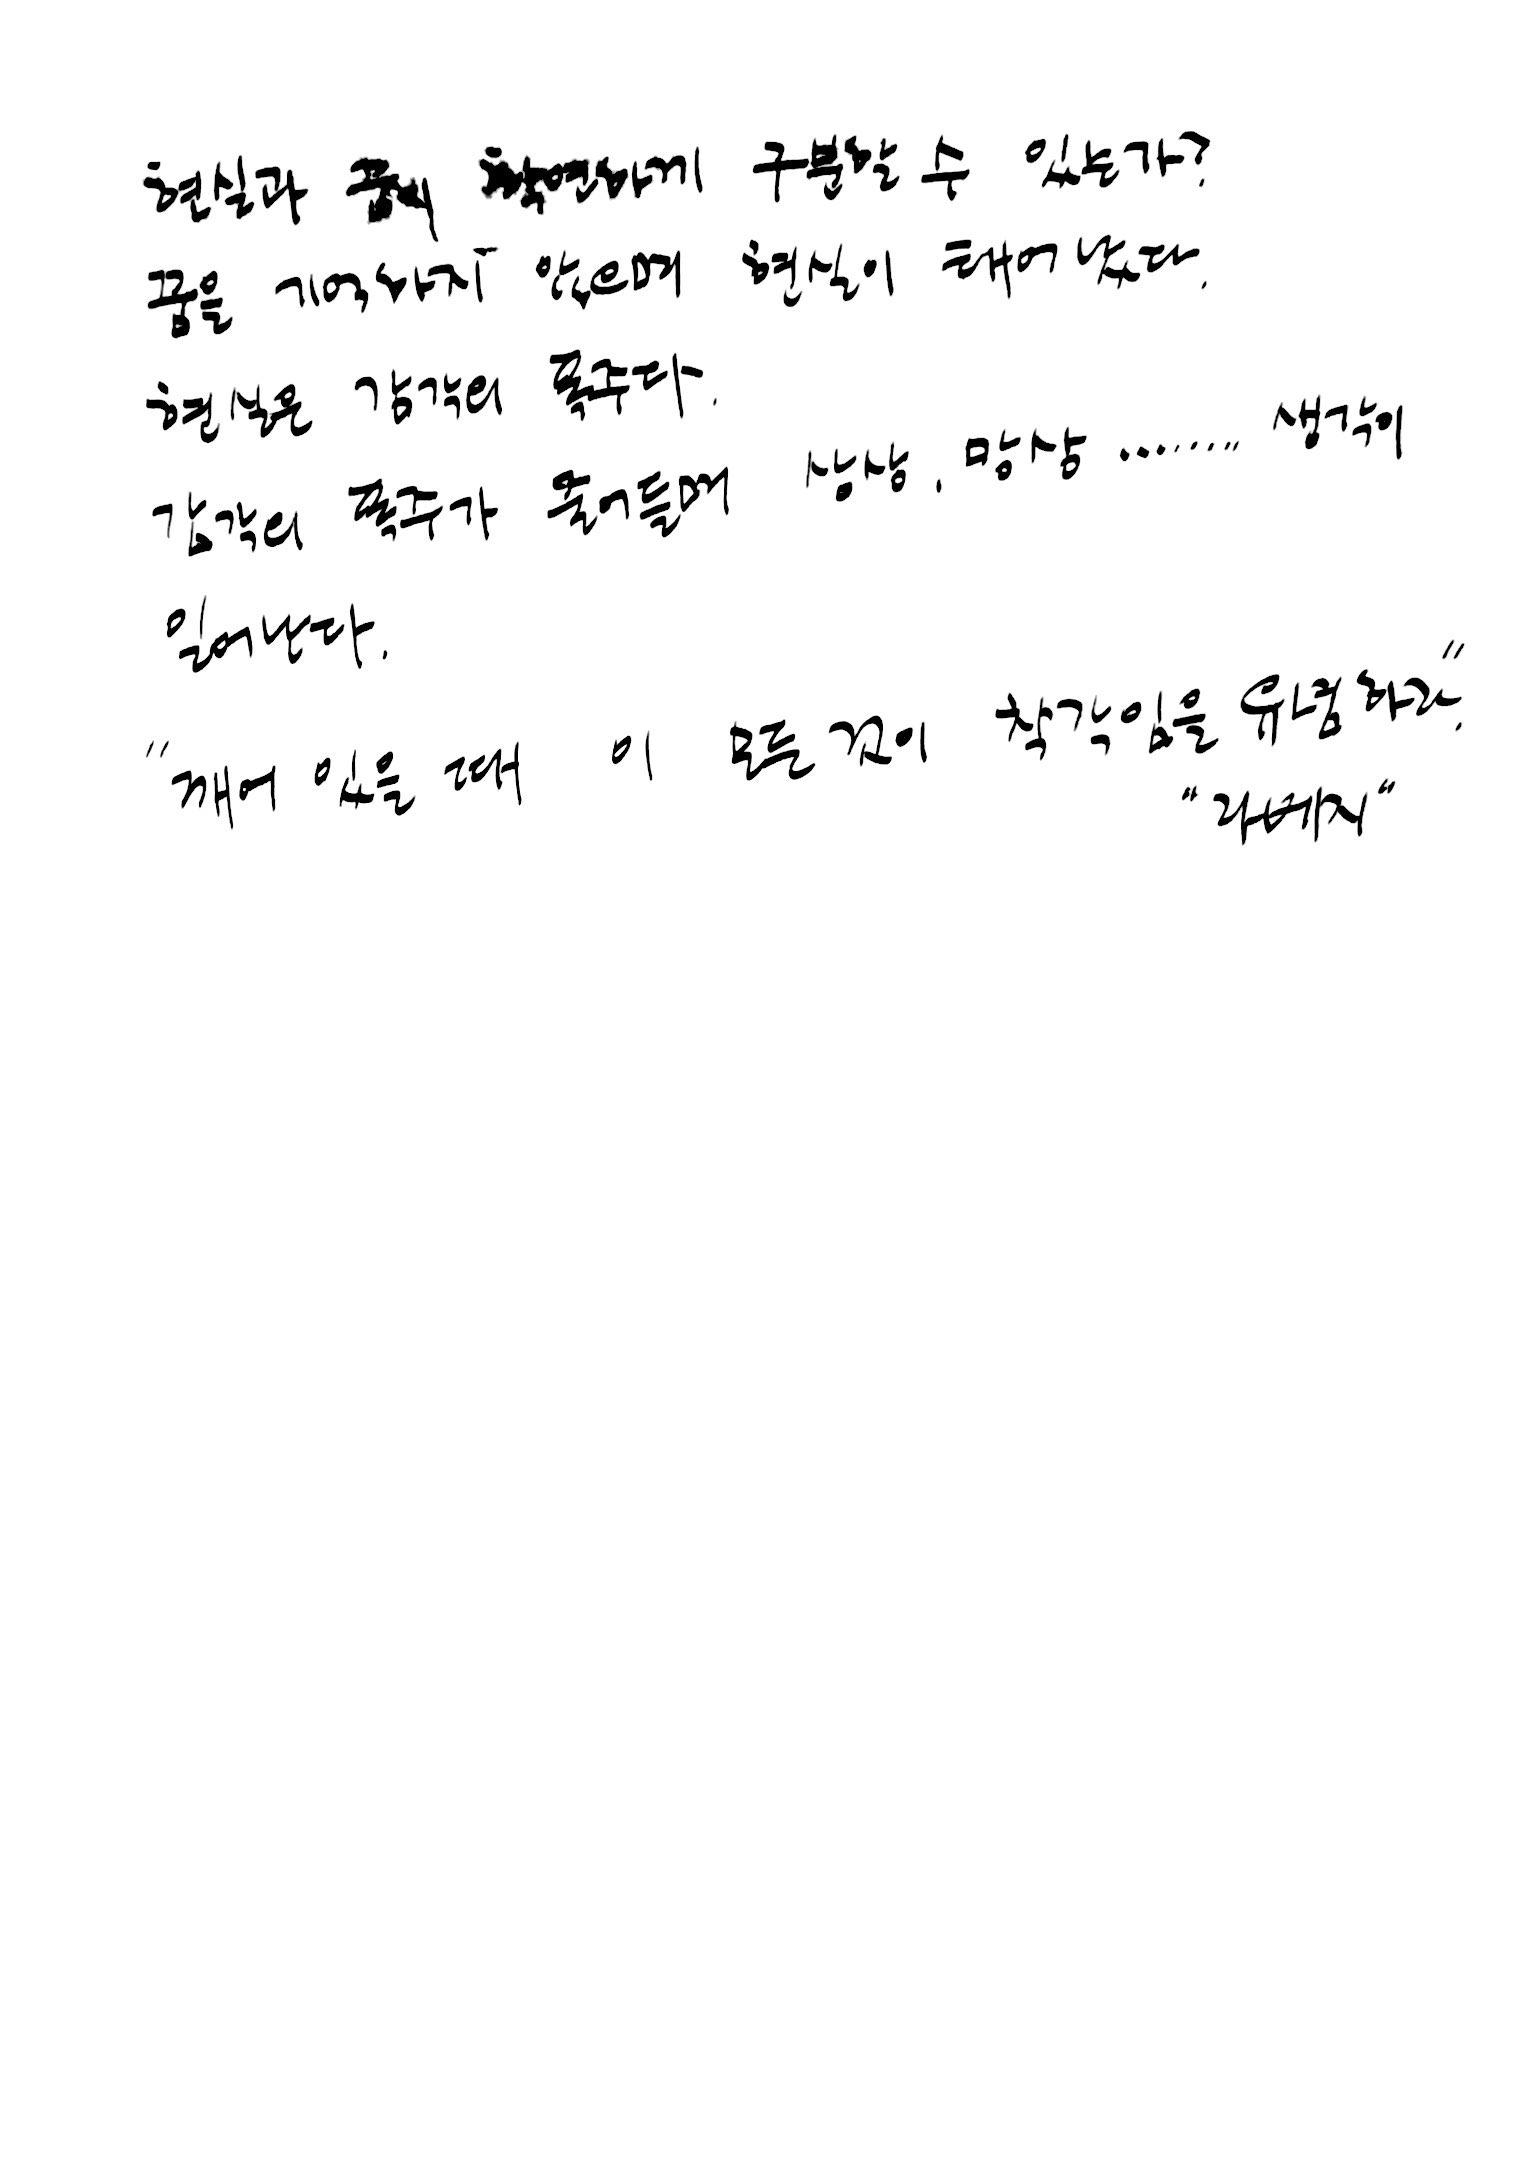 현실과 꿈이 확연하게 구분할 수 있는가?
꿈을 기억하지 않으며 현실이 태어났다.
현실은 감각의 폭주다.
감각의 폭주가 줄어들며 상상, 망상 ......... 생각이
일어난다.
"깨어 있을 때 이 모든 것이 착각임을 유념하라."
"라베지"